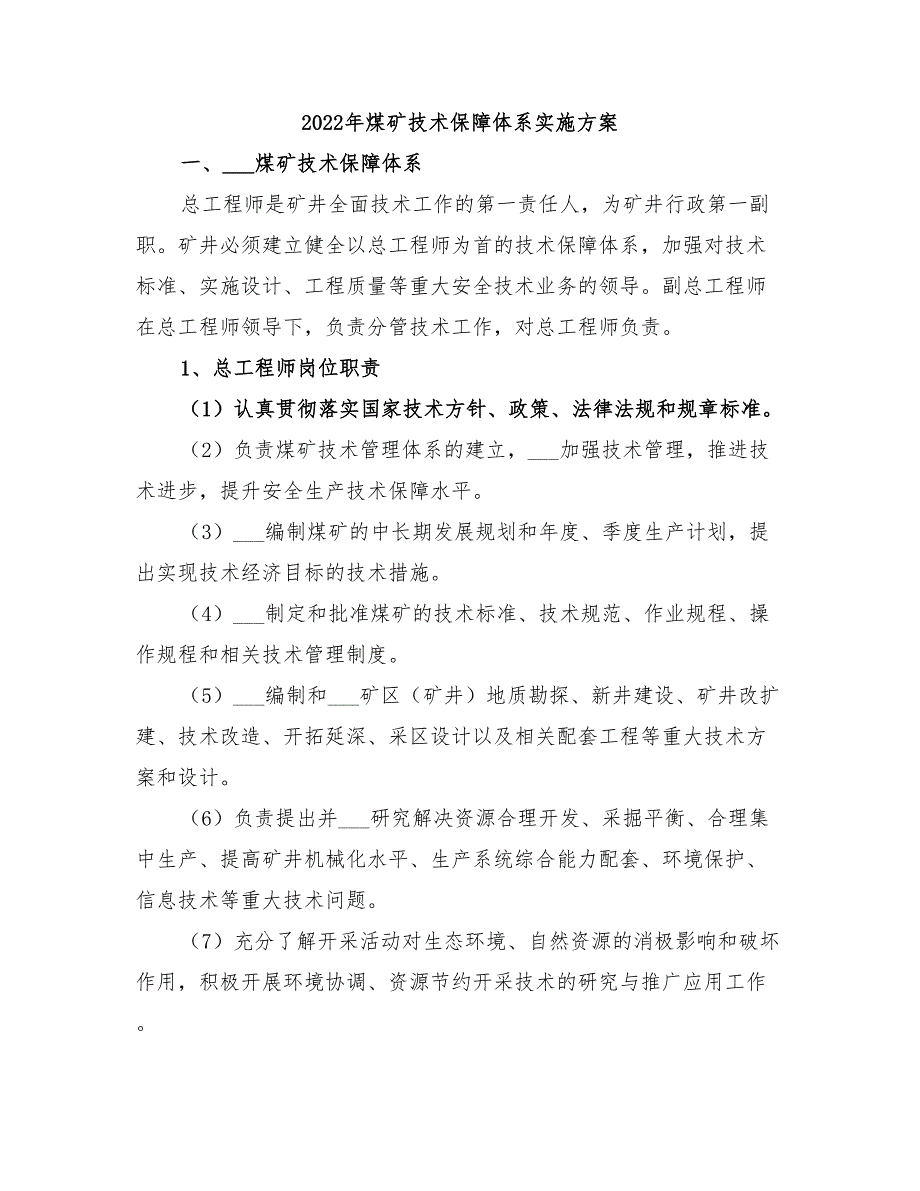 2022年煤矿技术保障体系实施方案
一、___煤矿技术保障体系
总工程师是矿井全面技术工作的第一责任人，为矿井行政第一副
职。矿井必须建立健全以总工程师为首的技术保障体系，加强对技术
标准、实施设计、工程质量等重大安全技术业务的领导。副总工程师
在总工程师领导下，负责分管技术工作，对总工程师负责。
1、总工程师岗位职责
（1）认真贯彻落实国家技术方针、政策、法律法规和规章标准。
（2）负责煤矿技术管理体系的建立，___加强技术管理，推进技
术进步，提升安全生产技术保障水平。
（3）___编制煤矿的中长期发展规划和年度、季度生产计划，提
出实现技术经济目标的技术措施。
（4）___制定和批准煤矿的技术标准、技术规范、作业规程、操
作规程和相关技术管理制度。
（5）___编制和___矿区（矿井）地质勘探、新井建设、矿井改扩
建、技术改造、开拓延深、采区设计以及相关配套工程等重大技术方
案和设计。
（6）负责提出并___研究解决资源合理开发、采掘平衡、合理集
中生产、提高矿井机械化水平、生产系统综合能力配套、环境保护、
信息技术等重大技术问题。
（7）充分了解开采活动对生态环境、自然资源的消极影响和破坏
作用，积极开展环境协调、资源节约开采技术的研究与推广应用工作
。